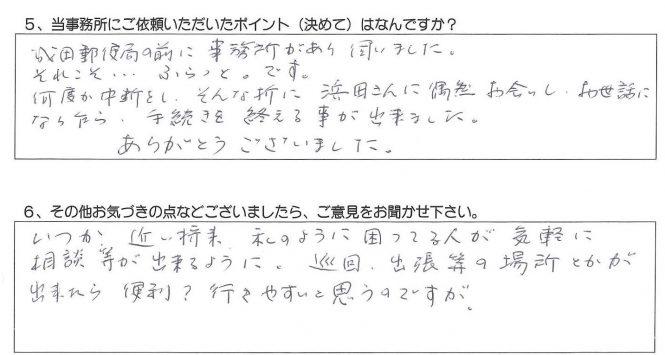 5、当事務所にご依頼いただいたポイント（決めて）はなんですか？
成田郵便局の前に 事務所があり 伺いました。
それこそ… ふらっと。です。
何度か中断をし、そんな折に 浜田さんに偶然 お会いし、お世話に
なりながら、手続きを 終える事が出来ました。
ありがとう ございました。
6、その他お気づきの点などございましたら、ご意見をお聞かせ下さい。
いつか、近い将来、私のように 困ってる人が 気軽に
相談等が出来るように。巡回、出張等の 場所とかが
出来たら 便利？行きやすいと思うのですが。